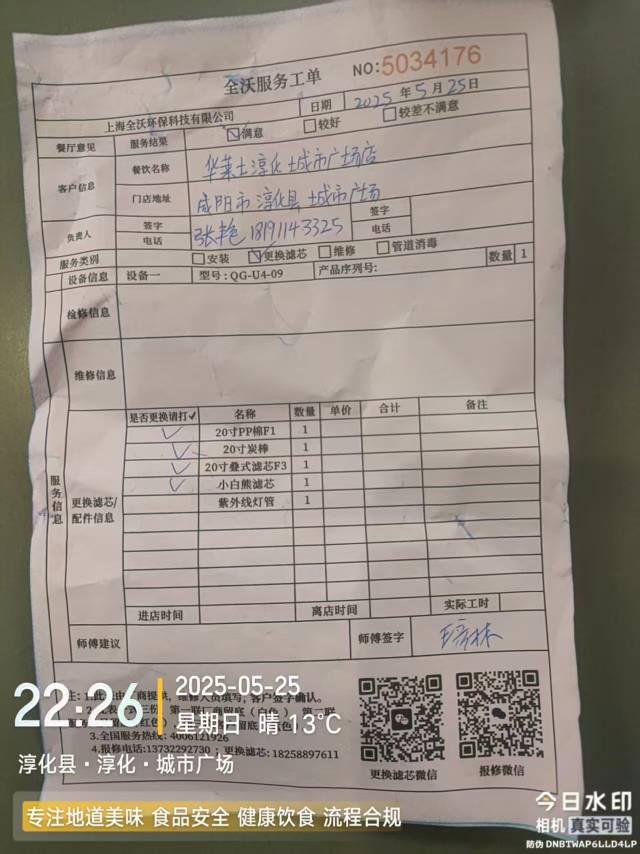 全沃服务工单 NO:5034176
上海全沃环保科技有限公司 日期 2025年5月25日
餐厅意见 服务结果 ☑满意 □较好 □较差不满意
客户信息 餐饮名称 华莱士淳化城市广场店
门店地址 咸阳市淳化县城市广场
负责人 签字 张艳 签字
电话 18191143325 电话
服务类别 □安装 ☑更换滤芯 □维修 □管道消毒
设备信息 设备一 型号:QG-U4-09 产品序列号: 数量 1
检修信息
维修信息
服务信息
是否更换请打✓ 名称 数量 单价 合计 备注
✓ 20寸PP棉F1 1
✓ 20寸炭棒 1
✓ 20寸叠式滤芯F3 1
✓ 小白熊滤芯 1
更换滤芯/配件信息
紫外线灯管 1
进店时间 离店时间 实际工时
师傅建议 师傅签字
注:
客户签字确认。
3.全国服务热线:4006121926
4.报修电话:13732292730 ; 更换滤芯:18258897611
更换滤芯微信 报修微信
22:26 2025-05-25
星期日 晴 13℃
淳化县·淳化·城市广场
专注地道美味 食品安全 健康饮食 流程合规
今日水印
相机 真实可验
防伪 DNBTWAP6LLD4LP